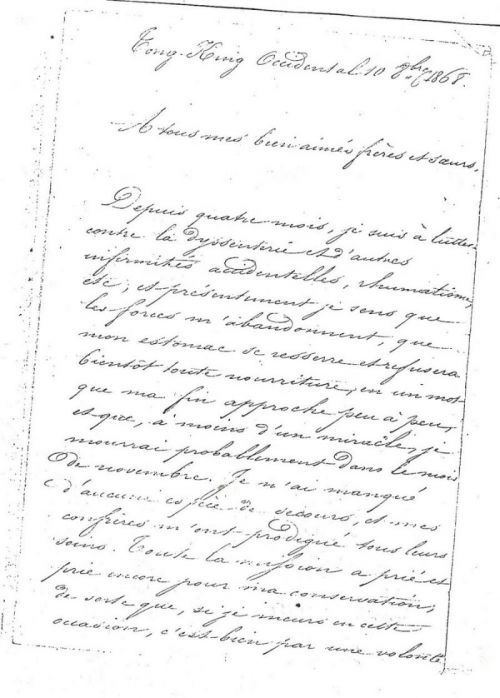 Tong-King Occidental 10 8bre 1868.
A tous mes bien aimés frères et sœurs,
Depuis quatre mois, je suis à lutter
contre la dyssenterie et d'autres
infirmités accidentelles, rhumatisme,
etc; et présentement je sens que
les forces m'abandonnent, que
mon estomac se resserre et refusera
bientôt toute nourriture, en un mot
que ma fin approche peu à peu,
et que, à moins d'un miracle, je
mourrai probablement dans le mois
de novembre. Je n'ai manqué
d'aucune espèce de secours, et mes
confrères m'ont prodigué tous leurs
soins. Toute la mission a prié et
prie encore pour ma conservation,
de sorte que, si je meurs en cette
occasion, c'est bien par une volonté